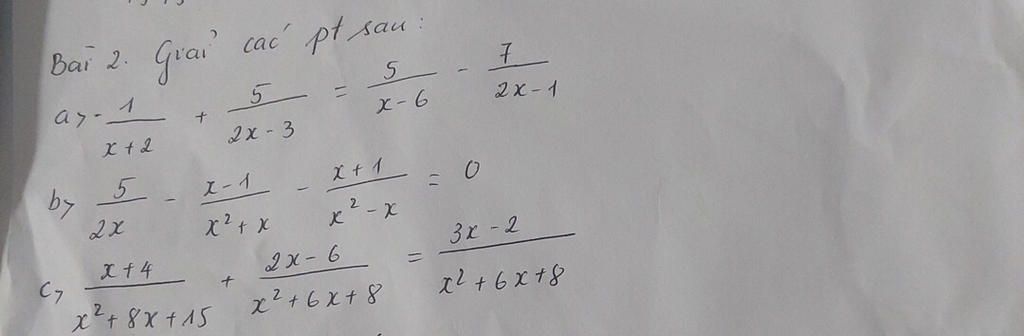 Bài 2. Giải các pt sau:
a> - 1/(x+2) + 5/(2x-3) = 5/(x-6) - 7/(2x-1)
b> 5/(2x) - (x-1)/(x²+x) - (x+1)/(x²-x) = 0
c> (x+4)/(x²+8x+15) + (2x-6)/(x²+6x+8) = (3x-2)/(x²+6x+8)